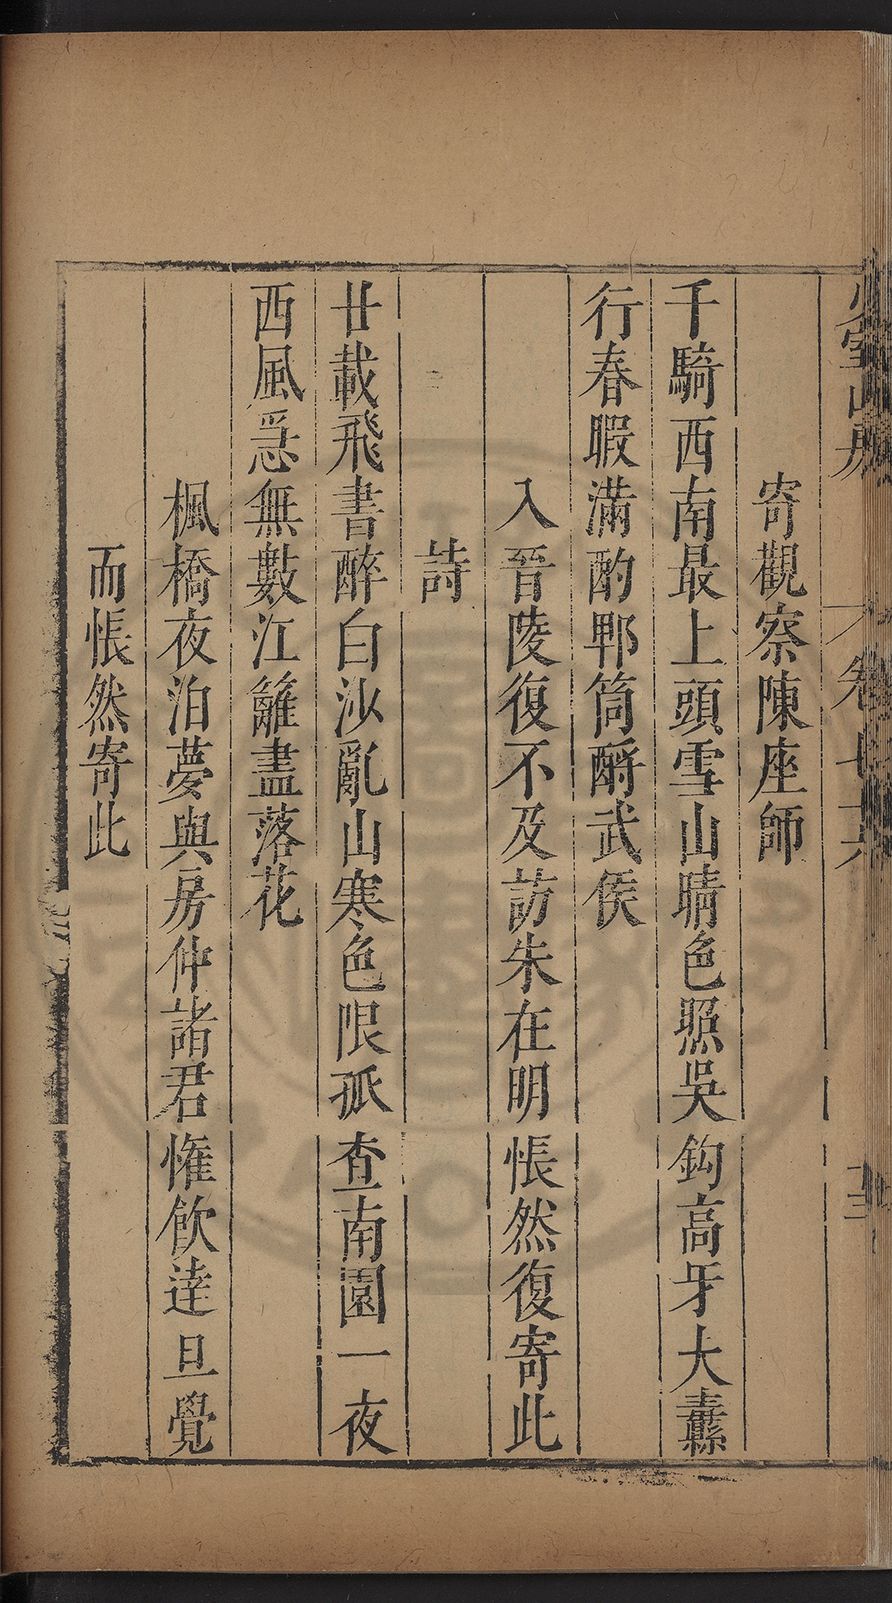 少室山房 卷七十六 十三
寄觀察陳座師
千騎西南最上頭雪山晴色照吳鈎高牙大纛
行春暇滿酌郫筒酹武侯
入晉陵復不及訪朱在明悵然復寄此
詩
廿載飛書醉白沙亂山寒色限孤查南園一夜
西風急無數江籬盡落花
楓橋夜泊夢與房仲諸君惟飲達旦覺
而悵然寄此